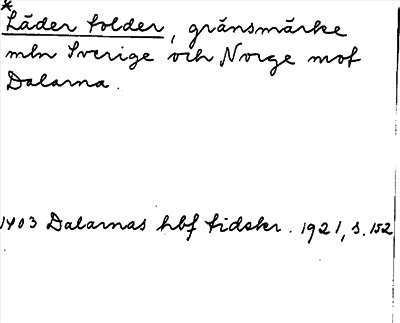 *
Läder tolder, gränsmärke
mln Sverige och Norge mot
Dalarna.
1403 Dalarnas hbf tidskr. 1921, s. 152